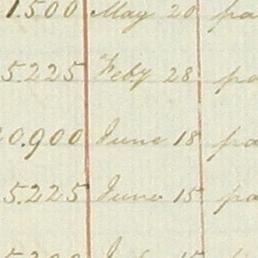 1.500 May 20 pa
5.225 Feby 28 pa
0.900 June 18 pa
5.225 June 15 pa